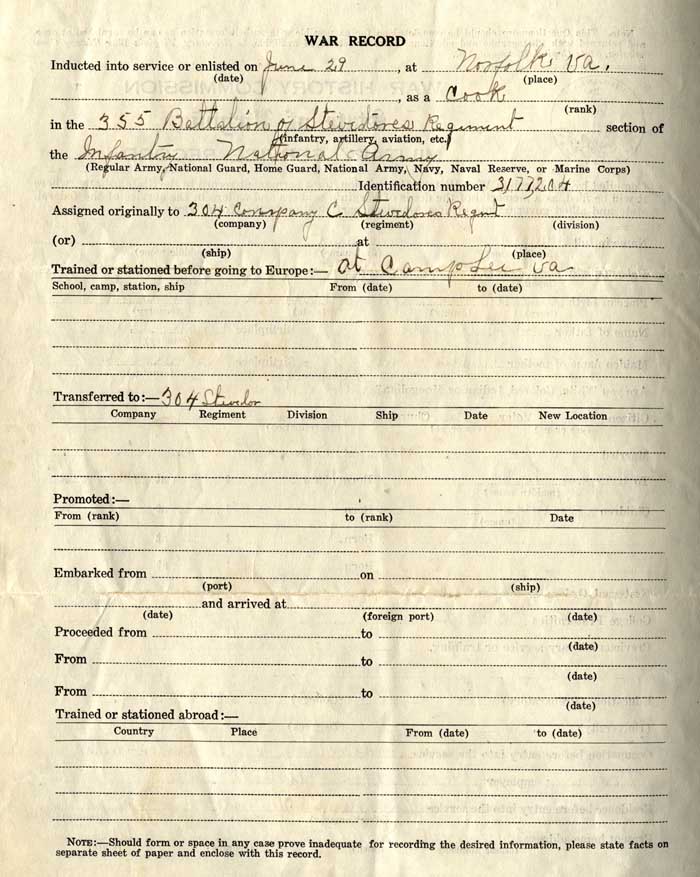 WAR RECORD
Inducted into service or enlisted on June 29, at Norfolk Va.
(date) (place)
, as a Cook
(rank)
in the 355 Battalion of Stevidores Regiment section of
(infantry, artillery, aviation, etc.)
the Infantry National Army
(Regular Army, National Guard, Home Guard, National Army, Navy, Naval Reserve, or Marine Corps)
Identification number 3177204
Assigned originally to 304 Company C Stevedores Regmt
(company) (regiment) (division)
(or) at
(ship) (place)
Trained or stationed before going to Europe:— at Camp Lee Va
School, camp, station, ship From (date) to (date)
Transferred to:— 304 Stevedor
Company Regiment Division Ship Date New Location
Promoted:—
From (rank) to (rank) Date
Embarked from on
(port) (ship)
and arrived at
(date) (foreign port) (date)
Proceeded from to
(date)
From to
(date)
From to
(date)
Trained or stationed abroad:—
Country Place From (date) to (date)
NOTE:—Should form or space in any case prove inadequate for recording the desired information, please state facts on
separate sheet of paper and enclose with this record.